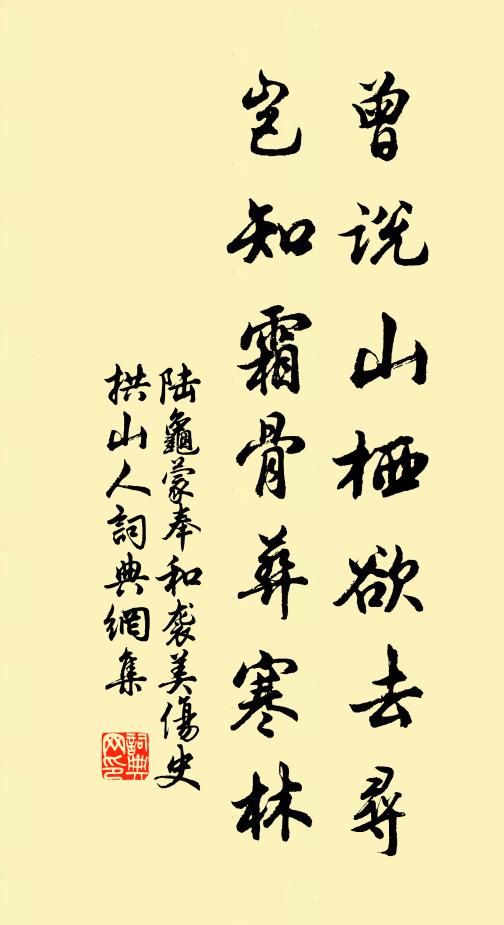 曾说山栖欲去寻
岂知霜骨葬寒林
陆龜蒙奉和袭美傷史
拱山人詞典網集
詞典网印